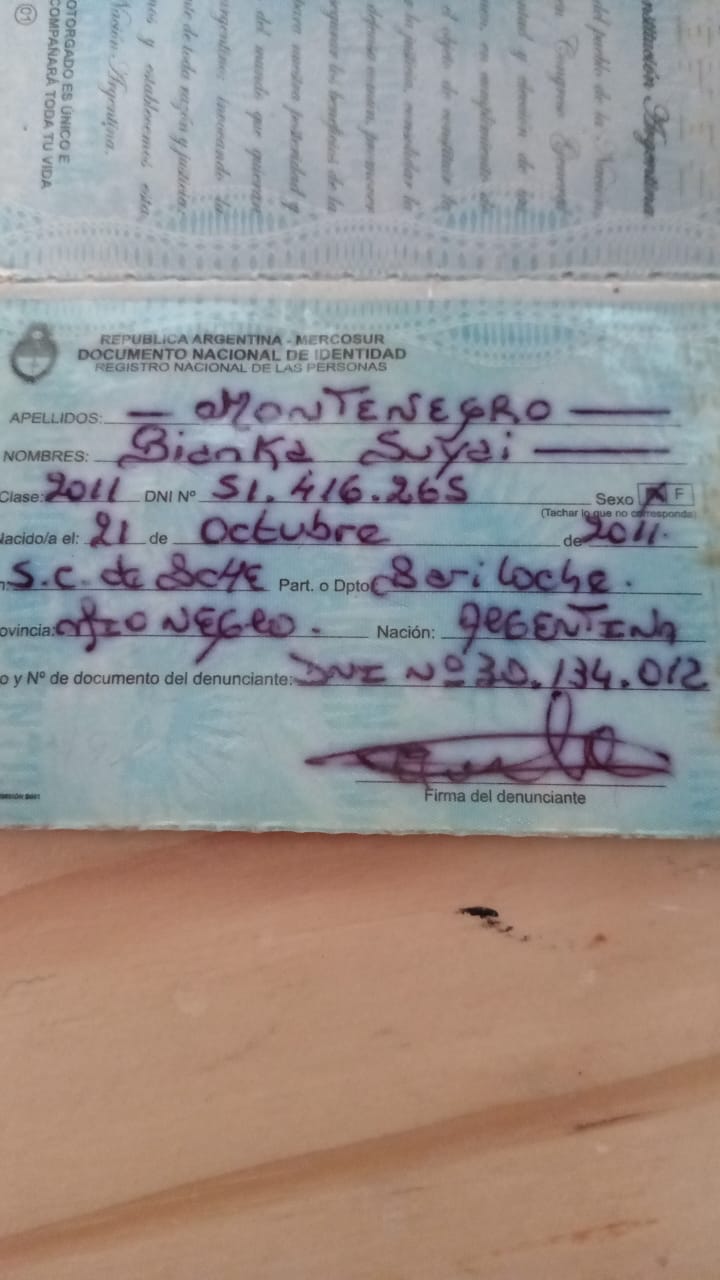 nstitución Argentina
del pueblo de la Nación
en Congreso General
untad y elección de las
en, en cumplimiento de
el objeto de constituir la
la justicia, consolidar la
defensa común, promover
asegurar los beneficios de la
para nuestra posteridad y
del mundo que quieran
argentino: invocando la
nte de toda razón y justicia:
mos y establecemos esta
Nación Argentina.
OTORGADO ES ÚNICO E
COMPAÑARÁ TODA TU VIDA
01
REPUBLICA ARGENTINA - MERCOSUR
DOCUMENTO NACIONAL DE IDENTIDAD
REGISTRO NACIONAL DE LAS PERSONAS
APELLIDOS: — MONTENEGRO —
NOMBRES: Bianka Suyai —
Clase: 2011 DNI Nº 51.416.265 Sexo M F
(Tachar lo que no corresponda)
Nacido/a el: 21 de Octubre de 2011.
S.C. de BCHE Part. o Dpto Bariloche.
ovincia: RIO NEGRO. Nación: ARGENTINA
o y Nº de documento del denunciante: DNI Nº 30.134.012
Firma del denunciante